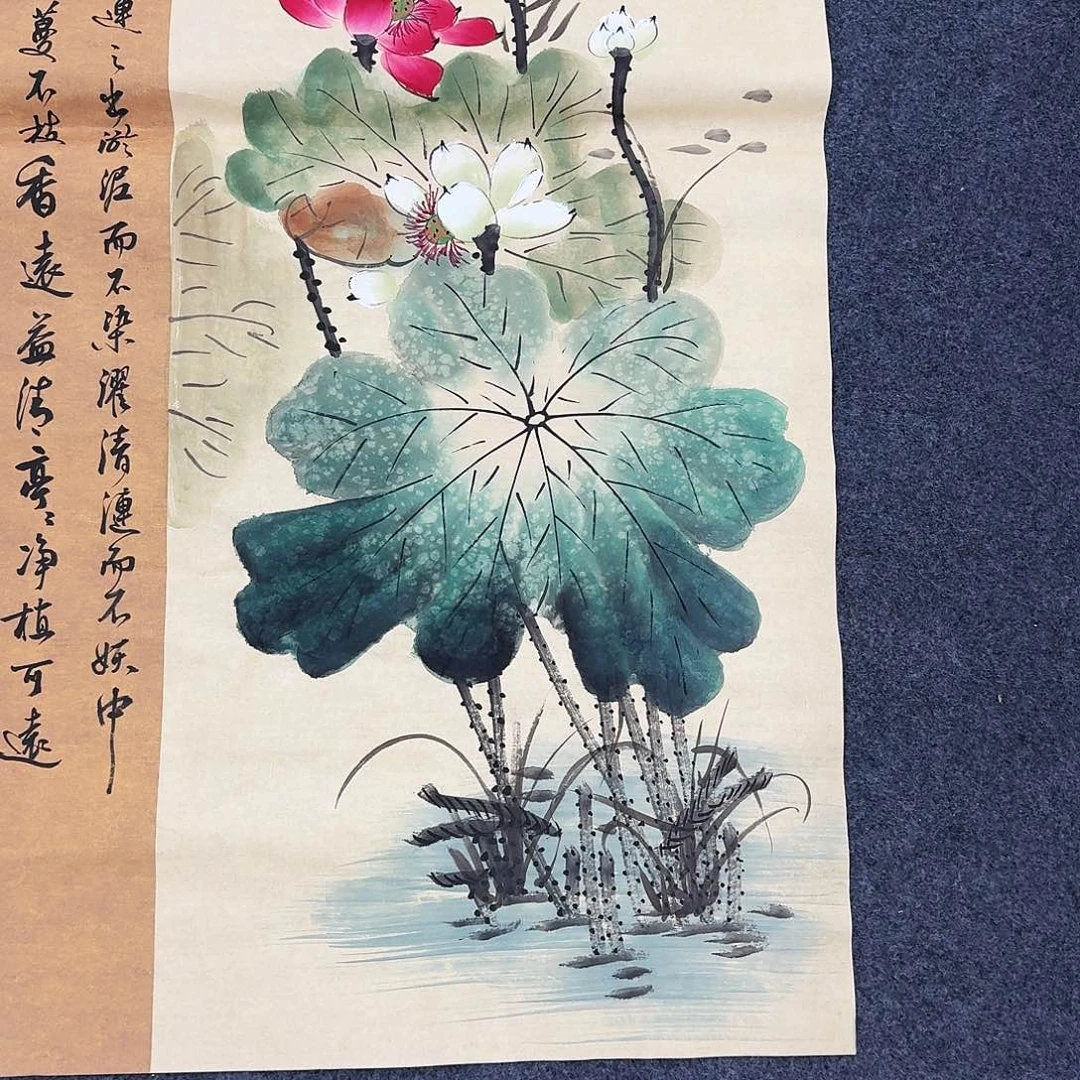 蓮之出淤泥而不染濯清漣而不妖中
蔓不枝香遠益清亭〻净植可遠